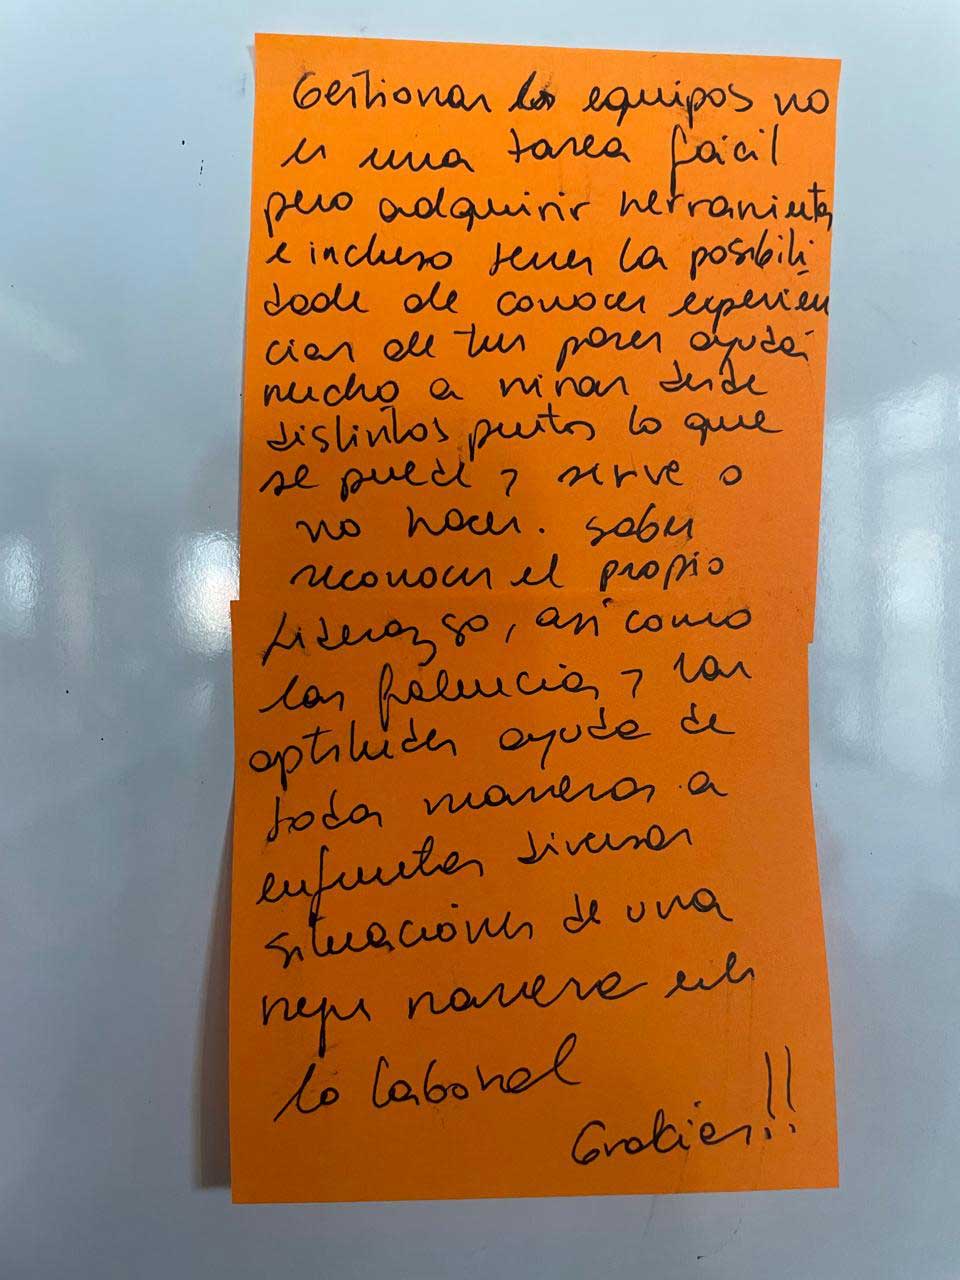 Gestionar los equipos no
es una tarea fácil
pero adquirir herramientas
e incluso tener la posibili
dade de conocer experien
cias de tus pares ayuda
mucho a mirar desde
distintos puntos lo que
se puede y sirve o
no hacer. Saber
reconocer el propio
Liderazgo, así como
las falencias y las
aptitudes ayuda de
todas maneras a
enfrentar diversas
situaciones de una
mejor manera en
lo laboral
Gracias!!